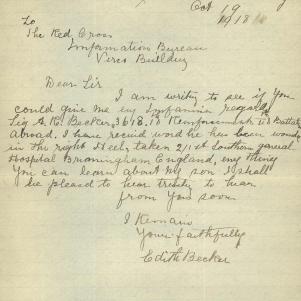 Oct 19
1918
To
The Red Cross
Information Bureau
Vires Building
Dear Sir
I am writing to see if you
could give me my Information regards
Sig A. R. Becker 3648. 10 Reinforcement Battalion
abroad, I have received word he has been wound
in the right Heel, taken 2/1st Southern general
Hospital Birmingham England, my thing
you can learn about my son I shall
be pleased to hear trusting to hear
from you soon
I Remain
Yours faithfully
Edith Becker